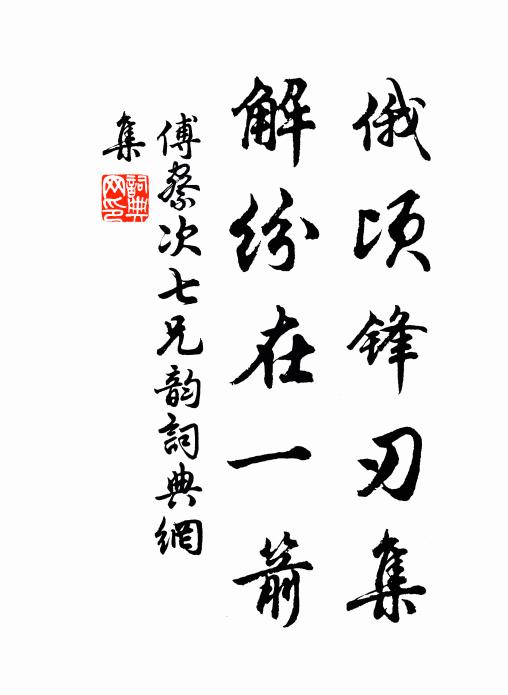 俄顷锋刃集
解纷在一箭
傅察次七兄韵詞典網
集
詞典网印